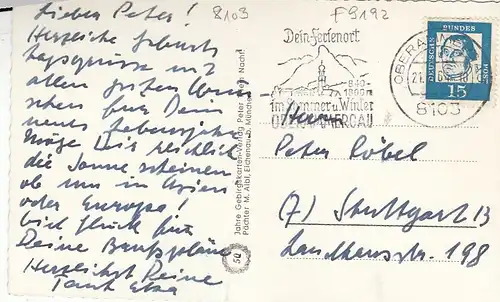 Lieber Peter!
Herzliche Geburts
tagsgrüsse und
allen guten Wün
schen für Dein
neues Lebensjahr
Möge Dir reichlich
die Sonne scheinen
ob nun in Asien
oder Europa!
Viel Glück für
Deine Berufspläne
Herzlichst Deine
Tante
8103
F9192
Dein Ferienort
840-
im Sommer u. Winter
OBERAMMERGAU
OBERAMM
21.
8103
DEUTSCHE
BUNDES
POST
15
Herrn
Peter Löbel
(7) Stuttgart 13
Landhausstr. 198
Jahre Gebirgskarten-Verlag Peter
Pächter: M. Albl, Eichenau b. München
50